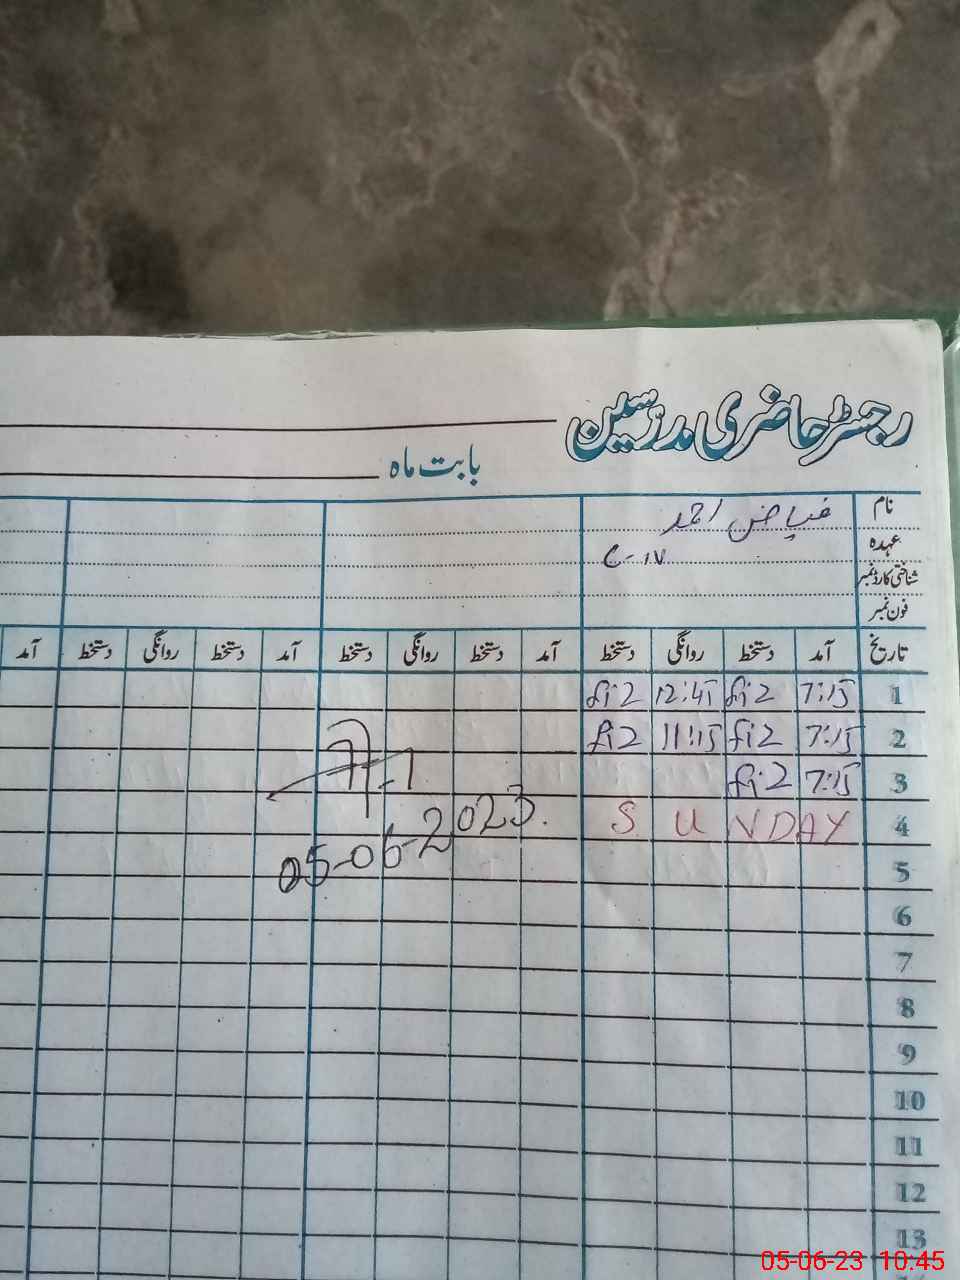 رجسٹر حاضری مدرسین
بابت ماہ
نام فیاض احمد
عہدہ C-IV
شناختی کارڈ نمبر
فون نمبر
تاریخ آمد دستخط روانگی دستخط آمد دستخط روانگی دستخط آمد دستخط روانگی دستخط آمد
1 7:15 12:45
2 7:15 11:15
3 7:15
4 SUNDAY
05-06-2023.
5
6
7
8
9
10
11
12
13
05-06-23 10:45